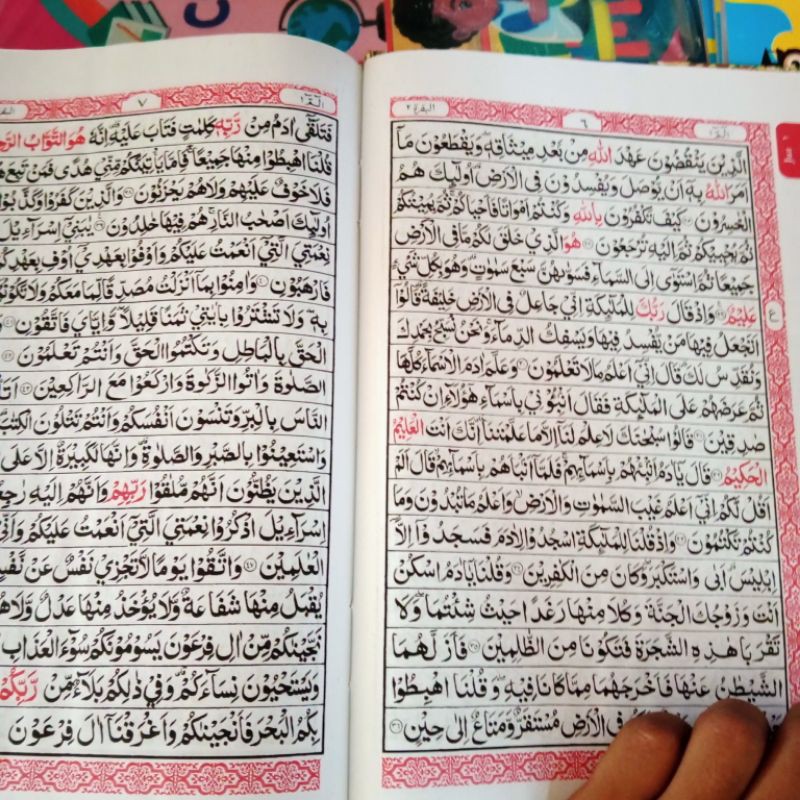 الٓمّٓ ١
٦
البقرة ٢
الَّذِيْنَ يَنْقُضُوْنَ عَهْدَ اللهِ مِنْ بَعْدِ مِيْثَاقِهٖ وَيَقْطَعُوْنَ مَآ
اَمَرَ اللهُ بِهٖٓ اَنْ يُّوْصَلَ وَيُفْسِدُوْنَ فِى الْاَرْضِ اُولٰٓئِكَ هُمُ
الْخٰسِرُوْنَ ٢٧ كَيْفَ تَكْفُرُوْنَ بِاللهِ وَكُنْتُمْ اَمْوَاتًا فَاَحْيَاكُمْ ثُمَّ يُمِيْتُكُمْ
ثُمَّ يُحْيِيْكُمْ ثُمَّ اِلَيْهِ تُرْجَعُوْنَ ٢٨ هُوَ الَّذِيْ خَلَقَ لَكُمْ مَّا فِى الْاَرْضِ
جَمِيْعًا ثُمَّ اسْتَوٰٓى اِلَى السَّمَآءِ فَسَوّٰىهُنَّ سَبْعَ سَمٰوٰتٍ وَهُوَ بِكُلِّ شَيْءٍ
عَلِيْمٌ ٢٩ وَاِذْ قَالَ رَبُّكَ لِلْمَلٰٓئِكَةِ اِنِّيْ جَاعِلٌ فِى الْاَرْضِ خَلِيْفَةً قَالُوْٓا
اَتَجْعَلُ فِيْهَا مَنْ يُّفْسِدُ فِيْهَا وَيَسْفِكُ الدِّمَآءَ وَنَحْنُ نُسَبِّحُ بِحَمْدِكَ
وَنُقَدِّسُ لَكَ قَالَ اِنِّيْٓ اَعْلَمُ مَا لَا تَعْلَمُوْنَ ٣٠ وَعَلَّمَ اٰدَمَ الْاَسْمَآءَ كُلَّهَا
ثُمَّ عَرَضَهُمْ عَلَى الْمَلٰٓئِكَةِ فَقَالَ اَنْبِـُٔوْنِيْ بِاَسْمَآءِ هٰٓؤُلَآءِ اِنْ كُنْتُمْ
صٰدِقِيْنَ ٣١ قَالُوْا سُبْحٰنَكَ لَا عِلْمَ لَنَآ اِلَّا مَا عَلَّمْتَنَا اِنَّكَ اَنْتَ الْعَلِيْمُ
الْحَكِيْمُ ٣٢ قَالَ يٰٓاٰدَمُ اَنْۢبِئْهُمْ بِاَسْمَآئِهِمْ فَلَمَّآ اَنْۢبَاَهُمْ بِاَسْمَآئِهِمْ قَالَ اَلَمْ
اَقُلْ لَّكُمْ اِنِّيْٓ اَعْلَمُ غَيْبَ السَّمٰوٰتِ وَالْاَرْضِ وَاَعْلَمُ مَا تُبْدُوْنَ وَمَا
كُنْتُمْ تَكْتُمُوْنَ ٣٣ وَاِذْ قُلْنَا لِلْمَلٰٓئِكَةِ اسْجُدُوْا لِاٰدَمَ فَسَجَدُوْٓا اِلَّآ
اِبْلِيْسَ اَبٰى وَاسْتَكْبَرَ وَكَانَ مِنَ الْكٰفِرِيْنَ ٣٤ وَقُلْنَا يٰٓاٰدَمُ اسْكُنْ
اَنْتَ وَزَوْجُكَ الْجَنَّةَ وَكُلَا مِنْهَا رَغَدًا حَيْثُ شِئْتُمَا وَلَا
تَقْرَبَا هٰذِهِ الشَّجَرَةَ فَتَكُوْنَا مِنَ الظّٰلِمِيْنَ ٣٥ فَاَزَلَّهُمَا
الشَّيْطٰنُ عَنْهَا فَاَخْرَجَهُمَا مِمَّا كَانَا فِيْهِ وَقُلْنَا اهْبِطُوْا
فِى الْاَرْضِ مُسْتَقَرٌّ وَّمَتَاعٌ اِلٰى حِيْنٍ ٣٦
منزل ١
ع
الٓمّٓ ١
٧
فَتَلَقّٰٓى اٰدَمُ مِنْ رَّبِّهٖ كَلِمٰتٍ فَتَابَ عَلَيْهِ اِنَّهٗ هُوَ التَّوَّابُ
قُلْنَا اهْبِطُوْا مِنْهَا جَمِيْعًا فَاِمَّا يَاْتِيَنَّكُمْ مِّنِّيْ هُدًى فَمَنْ تَبِعَ
فَلَا خَوْفٌ عَلَيْهِمْ وَلَا هُمْ يَحْزَنُوْنَ ٣٨ وَالَّذِيْنَ كَفَرُوْا وَكَذَّبُوْا
اُولٰٓئِكَ اَصْحٰبُ النَّارِ هُمْ فِيْهَا خٰلِدُوْنَ ٣٩ يٰبَنِيْٓ اِسْرَآءِيْلَ
نِعْمَتِيَ الَّتِيْٓ اَنْعَمْتُ عَلَيْكُمْ وَاَوْفُوْا بِعَهْدِيْٓ اُوْفِ بِعَهْدِكُمْ
فَارْهَبُوْنِ ٤٠ وَاٰمِنُوْا بِمَآ اَنْزَلْتُ مُصَدِّقًا لِّمَا مَعَكُمْ وَلَا تَكُوْنُوْٓا
بِهٖ وَلَا تَشْتَرُوْا بِاٰيٰتِيْ ثَمَنًا قَلِيْلًا وَّاِيَّايَ فَاتَّقُوْنِ ٤١
الْحَقَّ بِالْبَاطِلِ وَتَكْتُمُوا الْحَقَّ وَاَنْتُمْ تَعْلَمُوْنَ ٤٢
الصَّلٰوةَ وَاٰتُوا الزَّكٰوةَ وَارْكَعُوْا مَعَ الرَّاكِعِيْنَ ٤٣
النَّاسَ بِالْبِرِّ وَتَنْسَوْنَ اَنْفُسَكُمْ وَاَنْتُمْ تَتْلُوْنَ الْكِتٰبَ
وَاسْتَعِيْنُوْا بِالصَّبْرِ وَالصَّلٰوةِ وَاِنَّهَا لَكَبِيْرَةٌ اِلَّا عَلَى
الَّذِيْنَ يَظُنُّوْنَ اَنَّهُمْ مُّلٰقُوْا رَبِّهِمْ وَاَنَّهُمْ اِلَيْهِ
اِسْرَآءِيْلَ اذْكُرُوْا نِعْمَتِيَ الَّتِيْٓ اَنْعَمْتُ عَلَيْكُمْ وَاَنِّيْ
الْعٰلَمِيْنَ ٤٧ وَاتَّقُوْا يَوْمًا لَّا تَجْزِيْ نَفْسٌ عَنْ نَّفْسٍ
يُقْبَلُ مِنْهَا شَفَاعَةٌ وَّلَا يُؤْخَذُ مِنْهَا عَدْلٌ وَّلَا هُمْ
نَجَّيْنٰكُمْ مِّنْ اٰلِ فِرْعَوْنَ يَسُوْمُوْنَكُمْ سُوْٓءَ الْعَذَابِ
وَيَسْتَحْيُوْنَ نِسَآءَكُمْ وَفِيْ ذٰلِكُمْ بَلَآءٌ مِّنْ رَّبِّكُمْ
بِكُمُ الْبَحْرَ فَاَنْجَيْنٰكُمْ وَاَغْرَقْنَآ اٰلَ فِرْعَوْنَ